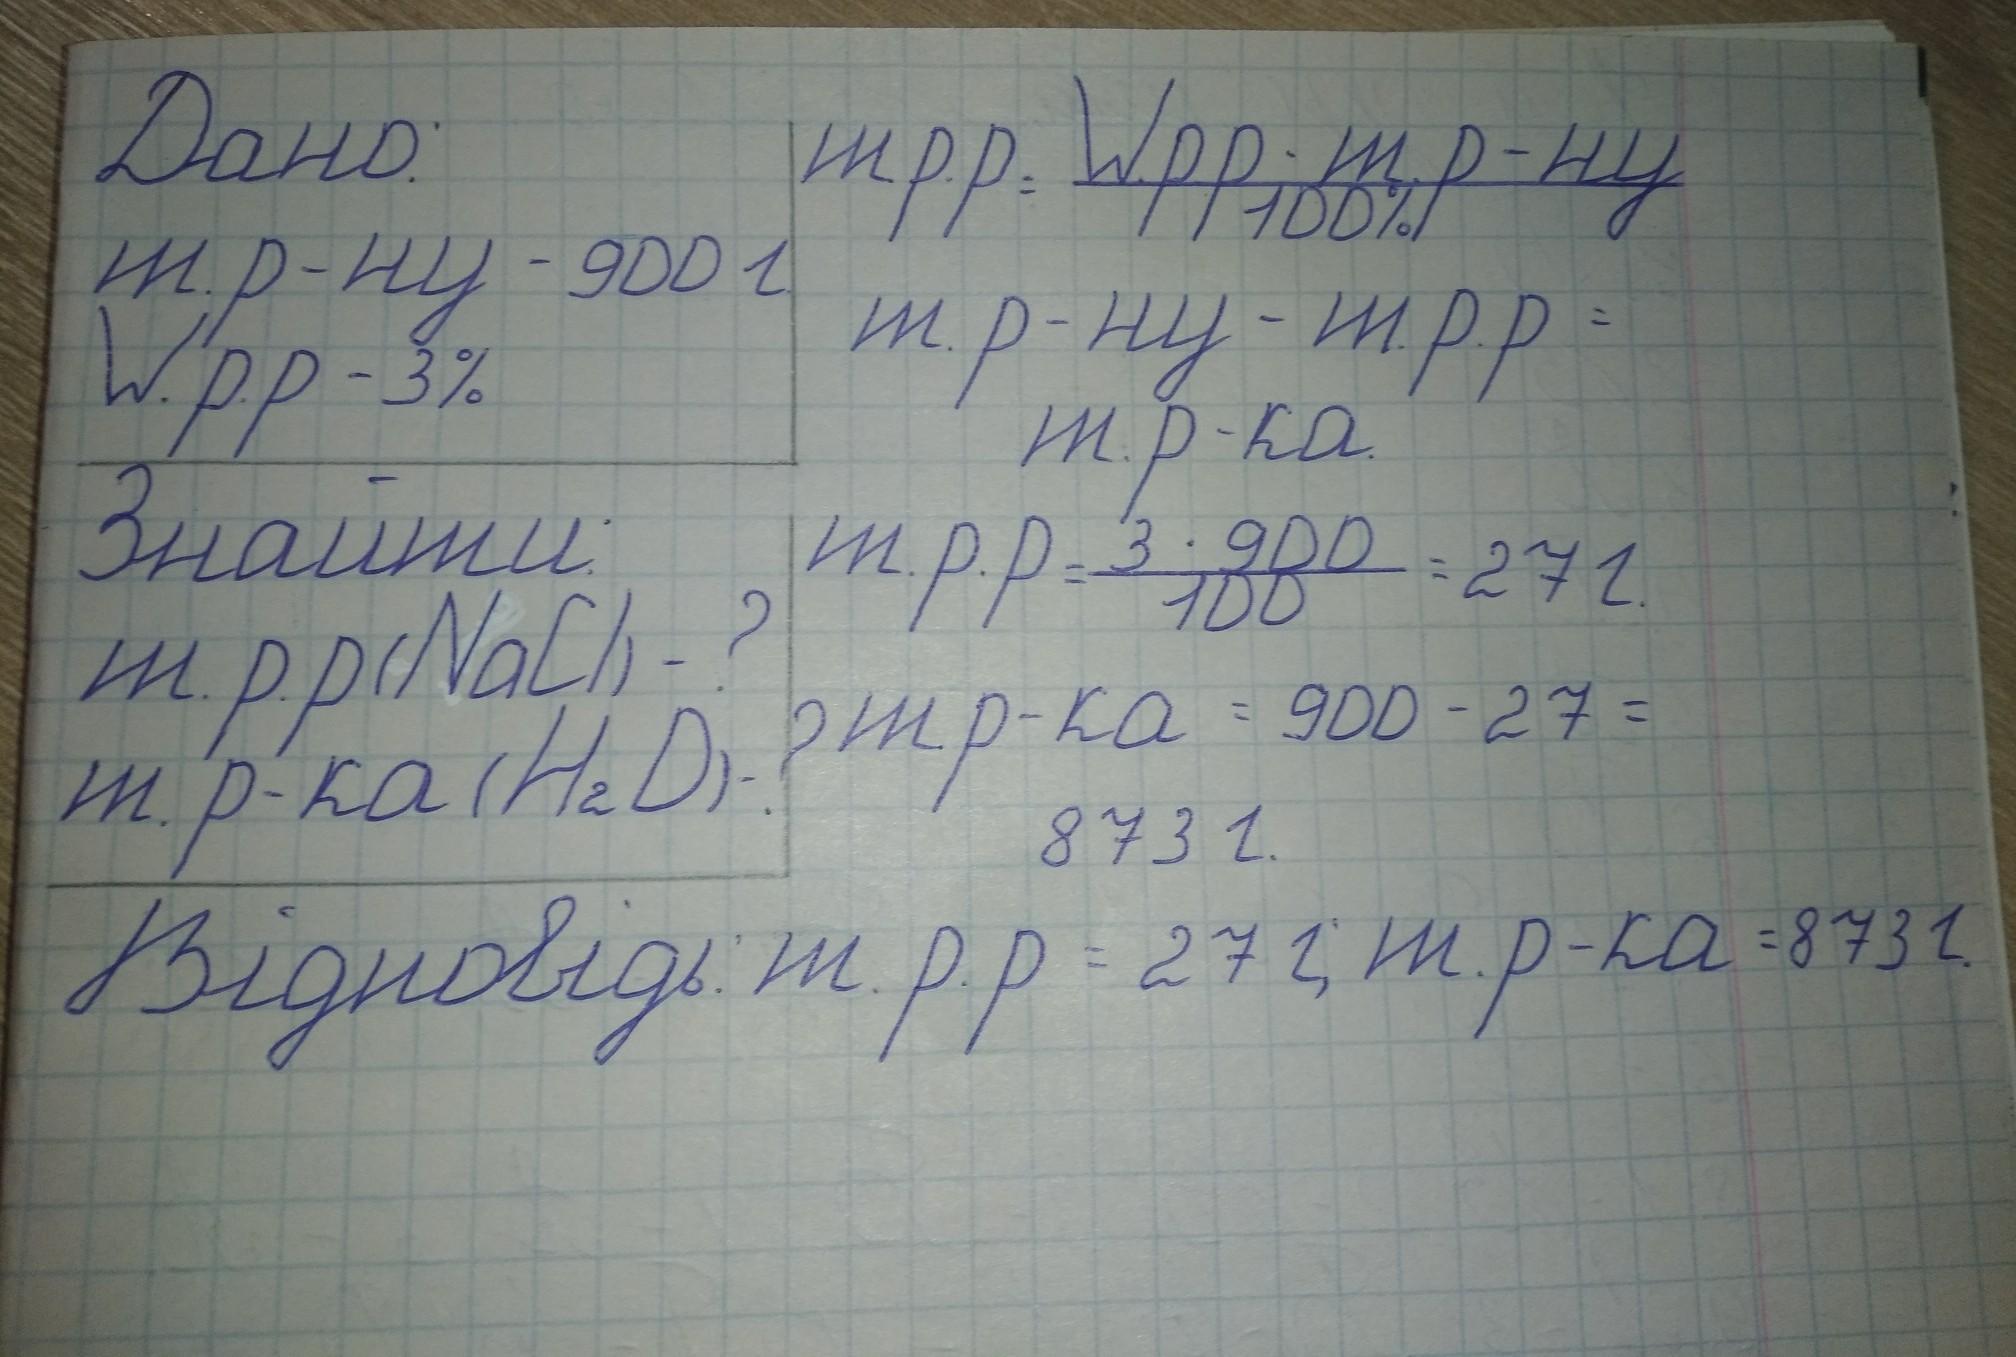 Дано:
m.р-ну - 900 г.
W.р.р - 3%
Знайти:
m.р.р (NaCl) - ?
m.р-ка (H₂O) - ?
m.р.р = W.рр · m.р-ну
100%
m.р-ну - m.р.р =
m.р-ка.
m.р.р = 3 · 900 = 27 г.
100
m.р-ка = 900 - 27 =
873 г.
Відповідь: m.р.р = 27 г; m.р-ка = 873 г.